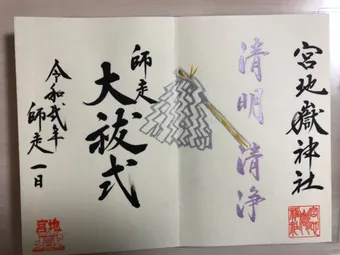 宮地嶽神社
清明清浄
師走
大祓式
令和弐年
師走一日